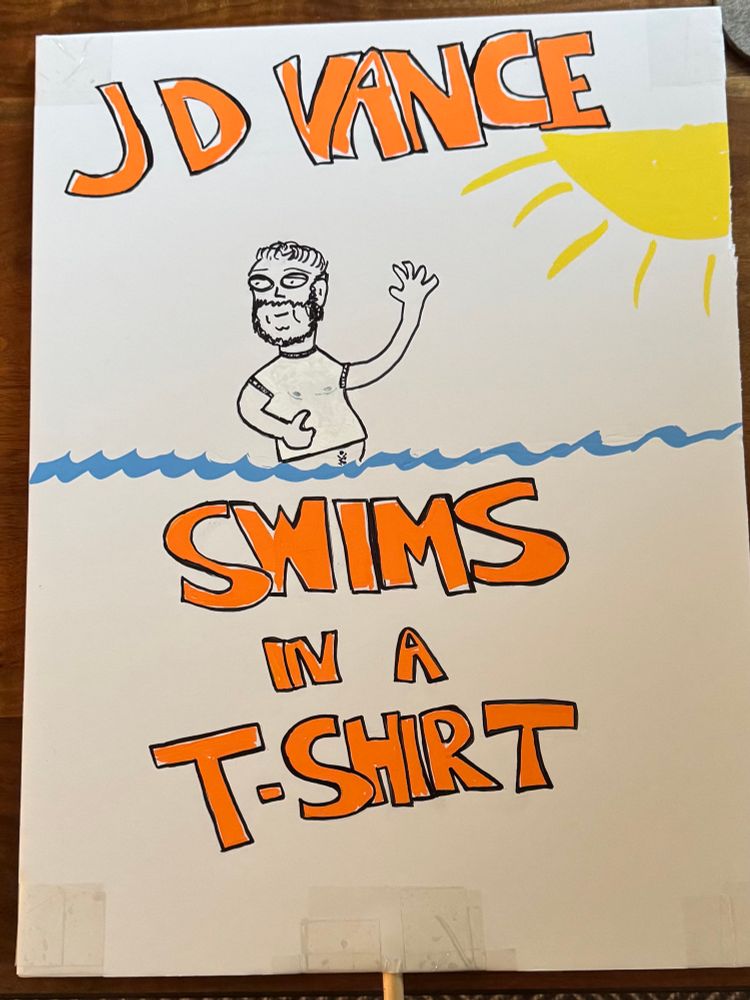 JD VANCE
SWIMS
IN A
T-SHIRT